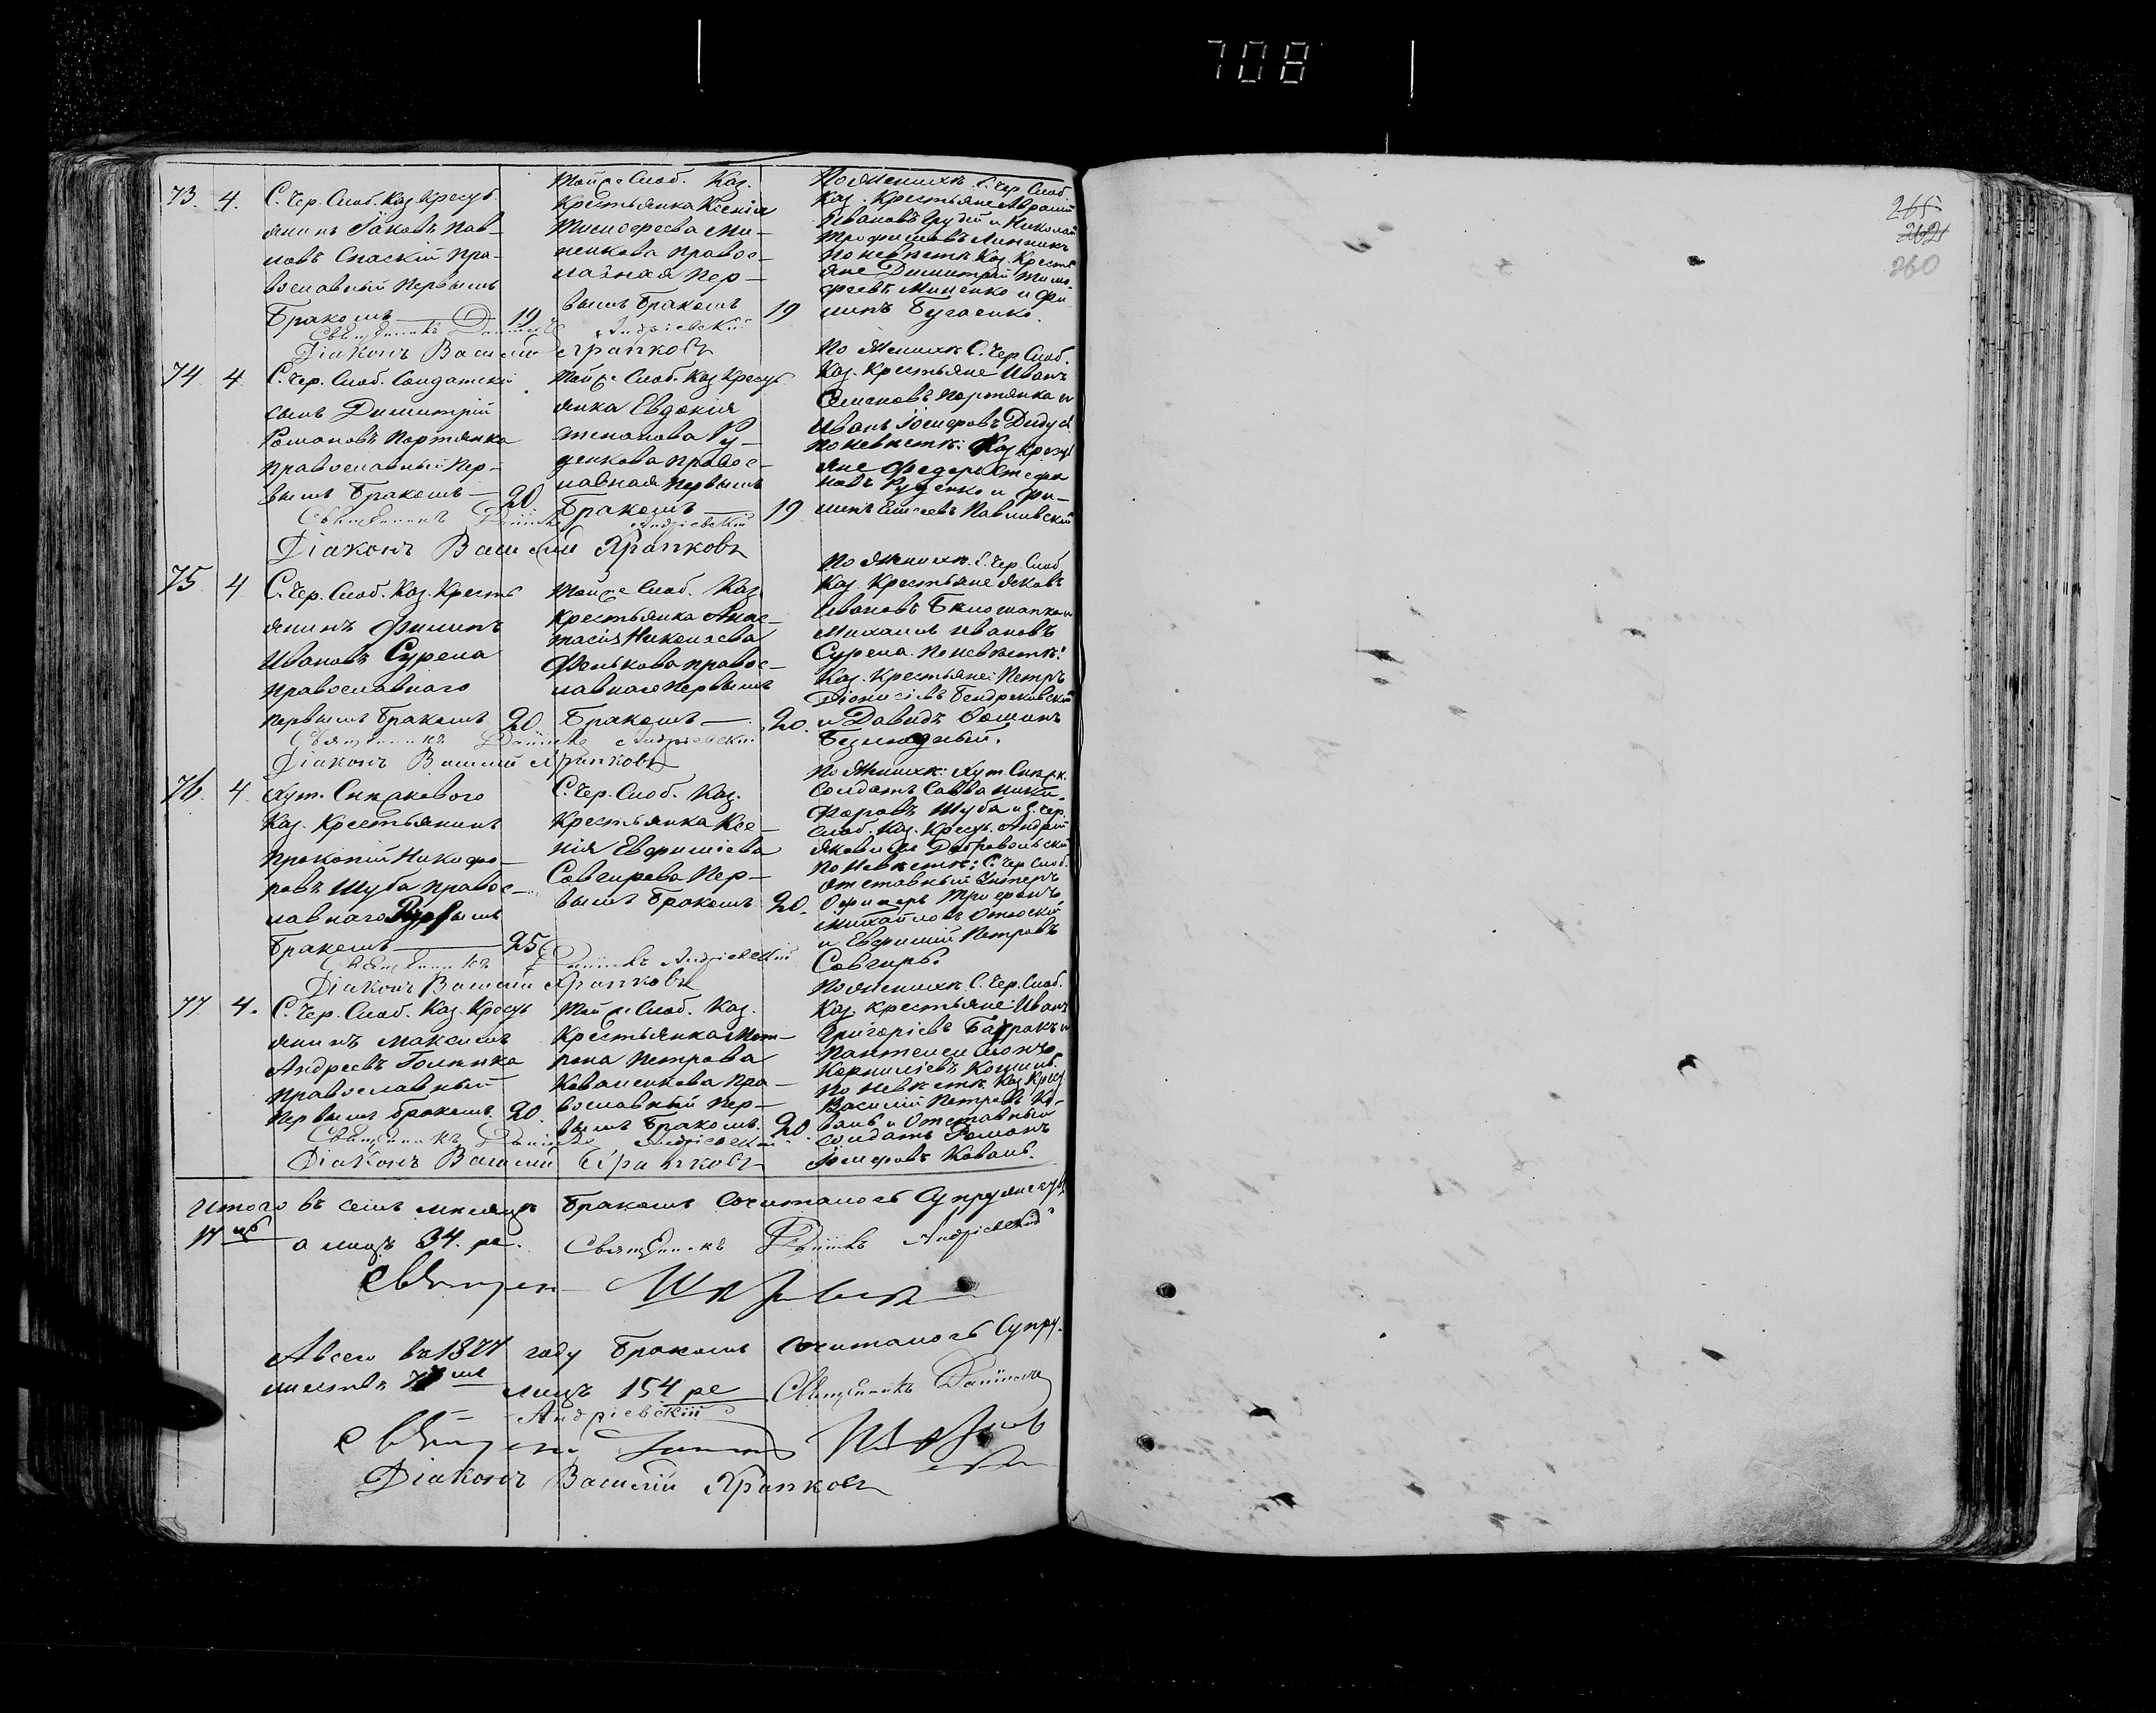 708
265
262
260
73. 4. С. Чер. Слоб. Каз. Кресть
янинъ Іаковъ Пав-
ловъ Спаскій пра-
вославный первымъ
бракомъ — 19
Той же Слоб. Каз.
Крестьянка Ксенія
Тимофеева Ми-
ненкова правос-
лавная пер-
вымъ бракомъ 19
По женихѣ: С. Чер. Слоб.
Каз. Крестьяне Аврамій
Ивановъ и Николай
Трофимовъ Линникъ
по невѣстѣ: Каз. Кресть
яне Димитрій Тимо-
феевъ Миненко и Фи
липъ Бугаенко.
Священникъ Даніилъ Андріевскій
Діаконъ Василій Храпковъ
74. 4. С. Чер. Слоб. Солдатскій
сынъ Димитрій
Романовъ Портянка
православный пер-
вымъ бракомъ — 20
Той же Слоб. Каз. Кресть
янка Евдокія
Стефанова Ру-
денкова правос-
лавная первымъ
бракомъ — 19
По женихѣ С. Чер. Слоб.
Каз. Крестьяне Иванъ
Семеновъ Портянка и
Иванъ Іосифовъ Дидуся.
По невѣстѣ: Каз. Кресть
яне Федоръ Стефа
новъ Руденко и Фи-
липъ Елисеевъ Павловскій
Священникъ Даніилъ Андріевскій
Діаконъ Василій Храпковъ
75 4 С. Чер. Слоб. Каз. Кресть
янинъ Филипъ
Ивановъ Сурела
православнаго
первымъ бракомъ 20
Той же Слоб. Каз.
Крестьянка Анас-
тасія Николаева
Фенькова правос-
лавнаго первымъ
бракомъ — 20.
По женихѣ: С. Чер. Слоб
Каз. Крестьяне Яковъ
Ивановъ Бѣлошапка и
Михаилъ Ивановъ
Сурела. По невѣстѣ:
Каз. Крестьяне: Петръ
Діонисіевъ
и Давидъ Фоминъ
Священникъ Даніилъ Андріевскій
Діаконъ Василій Храпковъ
76. 4. Хут.
Каз. Крестьянинъ
Прокопій Никифо-
ровъ Шуба правос-
лавнаго Первымъ
бракомъ — 25
С. Чер. Слоб. Каз.
Крестьянка Ксе-
нія Евфиміева
Совгирева Пер-
вымъ бракомъ 20.
По женихѣ: Хут.
Солдатъ Савва Ники-
форовъ Шуба и С. Чер.
Слоб. Каз. Кресть. Андрей
Яковлевъ Добровольскій
По невѣстѣ: С. Чер. Слоб.
отставный Унтеръ
Офицеръ Трифонъ
Михайловъ
и Евфимій Петровъ
Совгиръ.
Священникъ Даніилъ Андріевскій
Діаконъ Василій Храпковъ
77 4. С. Чер. Слоб. Каз. Кресть
янинъ Максимъ
Андреевъ Голинка
православный
первымъ бракомъ. 20
Той же Слоб. Каз.
Крестьянка Мот-
рона Петрова
Коваленкова Пра-
вославный пер-
вымъ бракомъ. 20.
По женихѣ С. Чер. Слоб.
Каз. Крестьяне: Иванъ
Григоріевъ Батракъ и
Пантелеймонъ
Корниліевъ
по невѣстѣ Каз. Крест.
Василій Петровъ Ко-
валь и Отставный
солдатъ Романъ
Іосифовъ Коваль.
Священникъ Даніилъ Андріевскій
Діаконъ Василій Храпковъ
Итого въ семъ мѣсяцѣ бракомъ сочиталось Супружествъ
17 а лицъ 34. ре. Священникъ Даніилъ Андріевскій
Священ
А всего въ 1877 году бракомъ сочиталось Супру-
жествъ 77 лицъ 154 ре Священникъ Даніилъ
Андріевскій
Священ
Діаконъ Василій Храпковъ